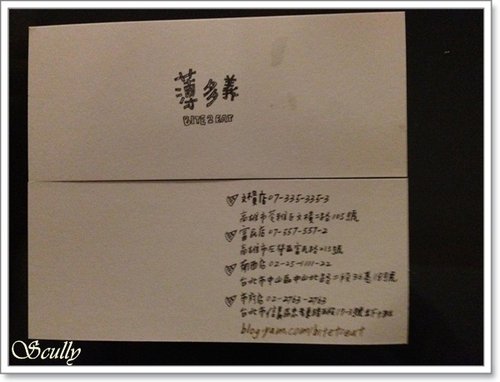 薄多義
BITE 2 EAT
文橫店 07-335-335-3
高雄市苓雅區文橫二路105號
富民店 07-557-557-2
高雄市左營區富民路
南西店 02-25-1111-22
台北市中山區中山北路二段36巷18號
市府店 02-2763-2763
台北市信義區忠孝東路
blog.yam.com/bitetoeat
Scully